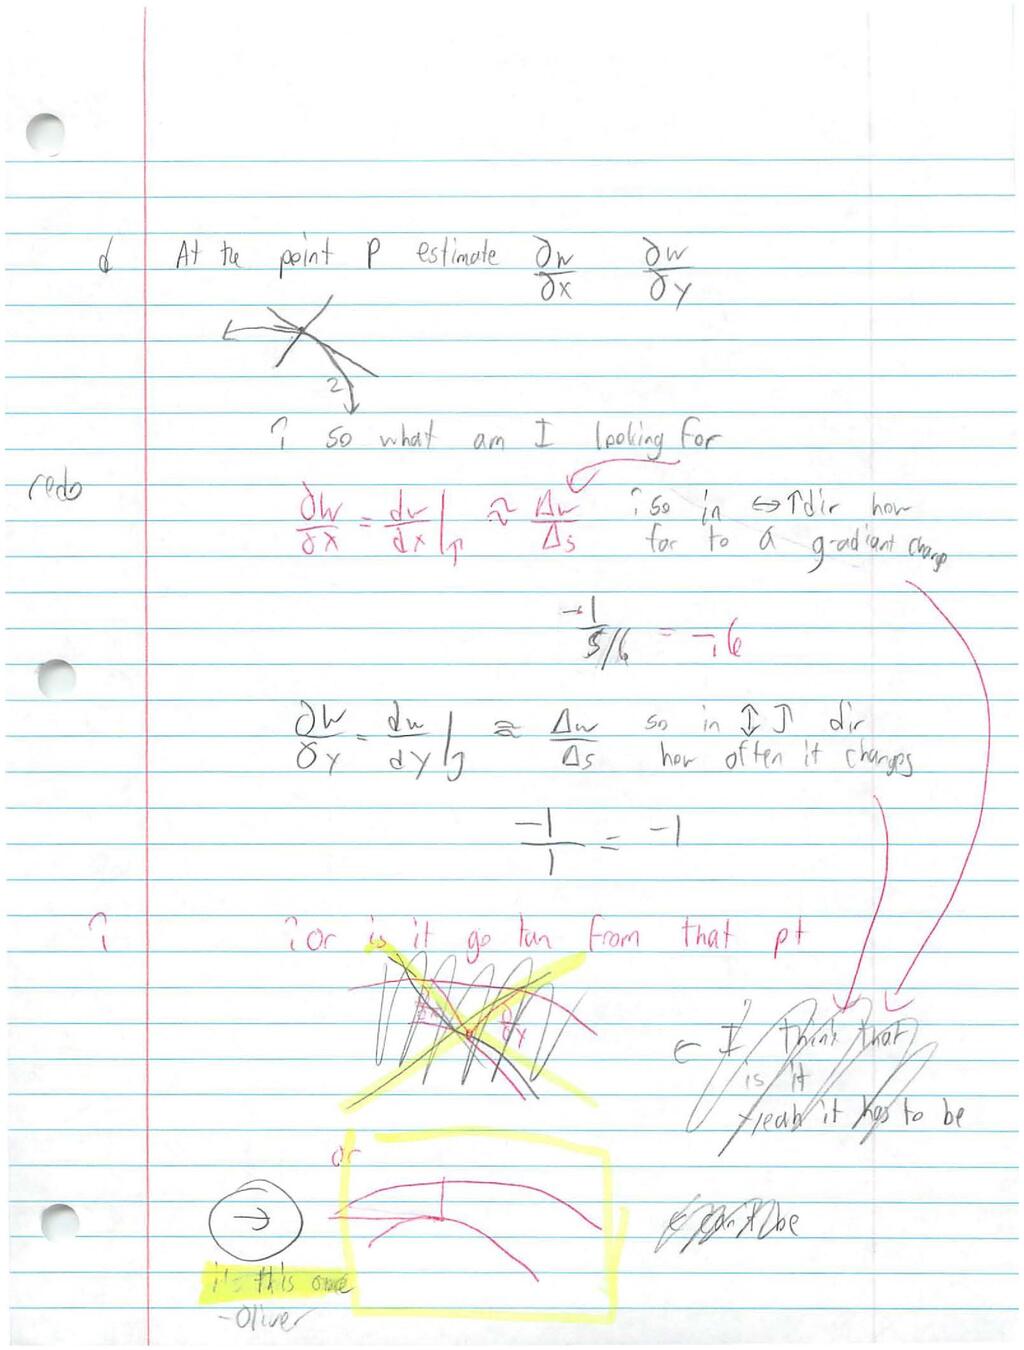 d At the point P estimate ∂w/∂x ∂w/∂y
2
? so what am I looking for
redo
∂w/∂x = dw/dx | ≈ Δw/Δs ? so in ↔ ↑ dir how
far to a gradiant change
-1 / 5/6 = -.6
∂w/∂y = dw/dy | ≈ Δw/Δs so in ↕ dir
how often it changes
-1/1 = -1
? ? or is it go tan from that pt
← I think that
is it
yeah it has to be
or
→ ← can't be
it's this one
-Oliver